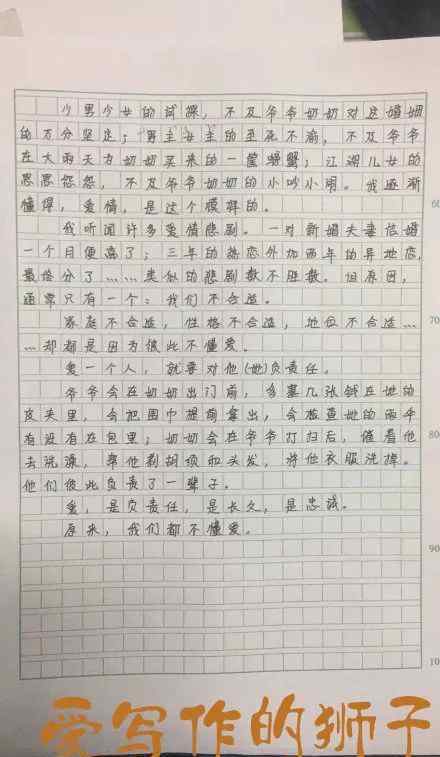 少男少女的试探，不及爷爷奶奶对这婚姻
的万分坚定；男主女主的至死不渝，不及爷爷
在大雨天为奶奶买来的一筐螃蟹；江湖儿女的
恩恩怨怨，不及爷爷奶奶的小吵小闹。我逐渐
懂得，爱情，是这个模样的。
我听闻许多爱情悲剧。一对新婚夫妻结婚
一个月便离了；三年的热恋外加两年的异地恋，
最终分了……类似的悲剧数不胜数。但原因，
通常只有一个：我们不合适。
60
家庭不合适，性格不合适，地位不合适…
…却都是因为彼此不懂爱。
70
爱一个人，就要对他(她)负责任。
爷爷会在奶奶出门前，多塞几张钱在她的
皮夹里，会把围巾提前拿出，会检查她的雨伞
有没有在包里；奶奶会在爷爷打扫后，催着他
80
去洗澡，帮他剃胡须和头发，将他衣服洗掉。
他们彼此负责了一辈子。
爱，是负责任，是长久，是忠诚。
原来，我们都不懂爱。
90
10
爱写作的狮子